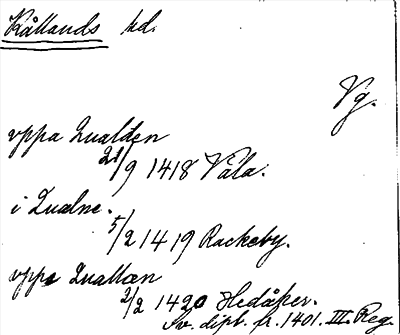 Kållands hd.
Vg.
vppa Qualden
21/9 1418 Väla.
i Qualne.
5/2 1419 Rackeby.
vppe Quallan
2/2 1420 Hedåker.
Sv. dipl. fr. 1401. III. Reg.